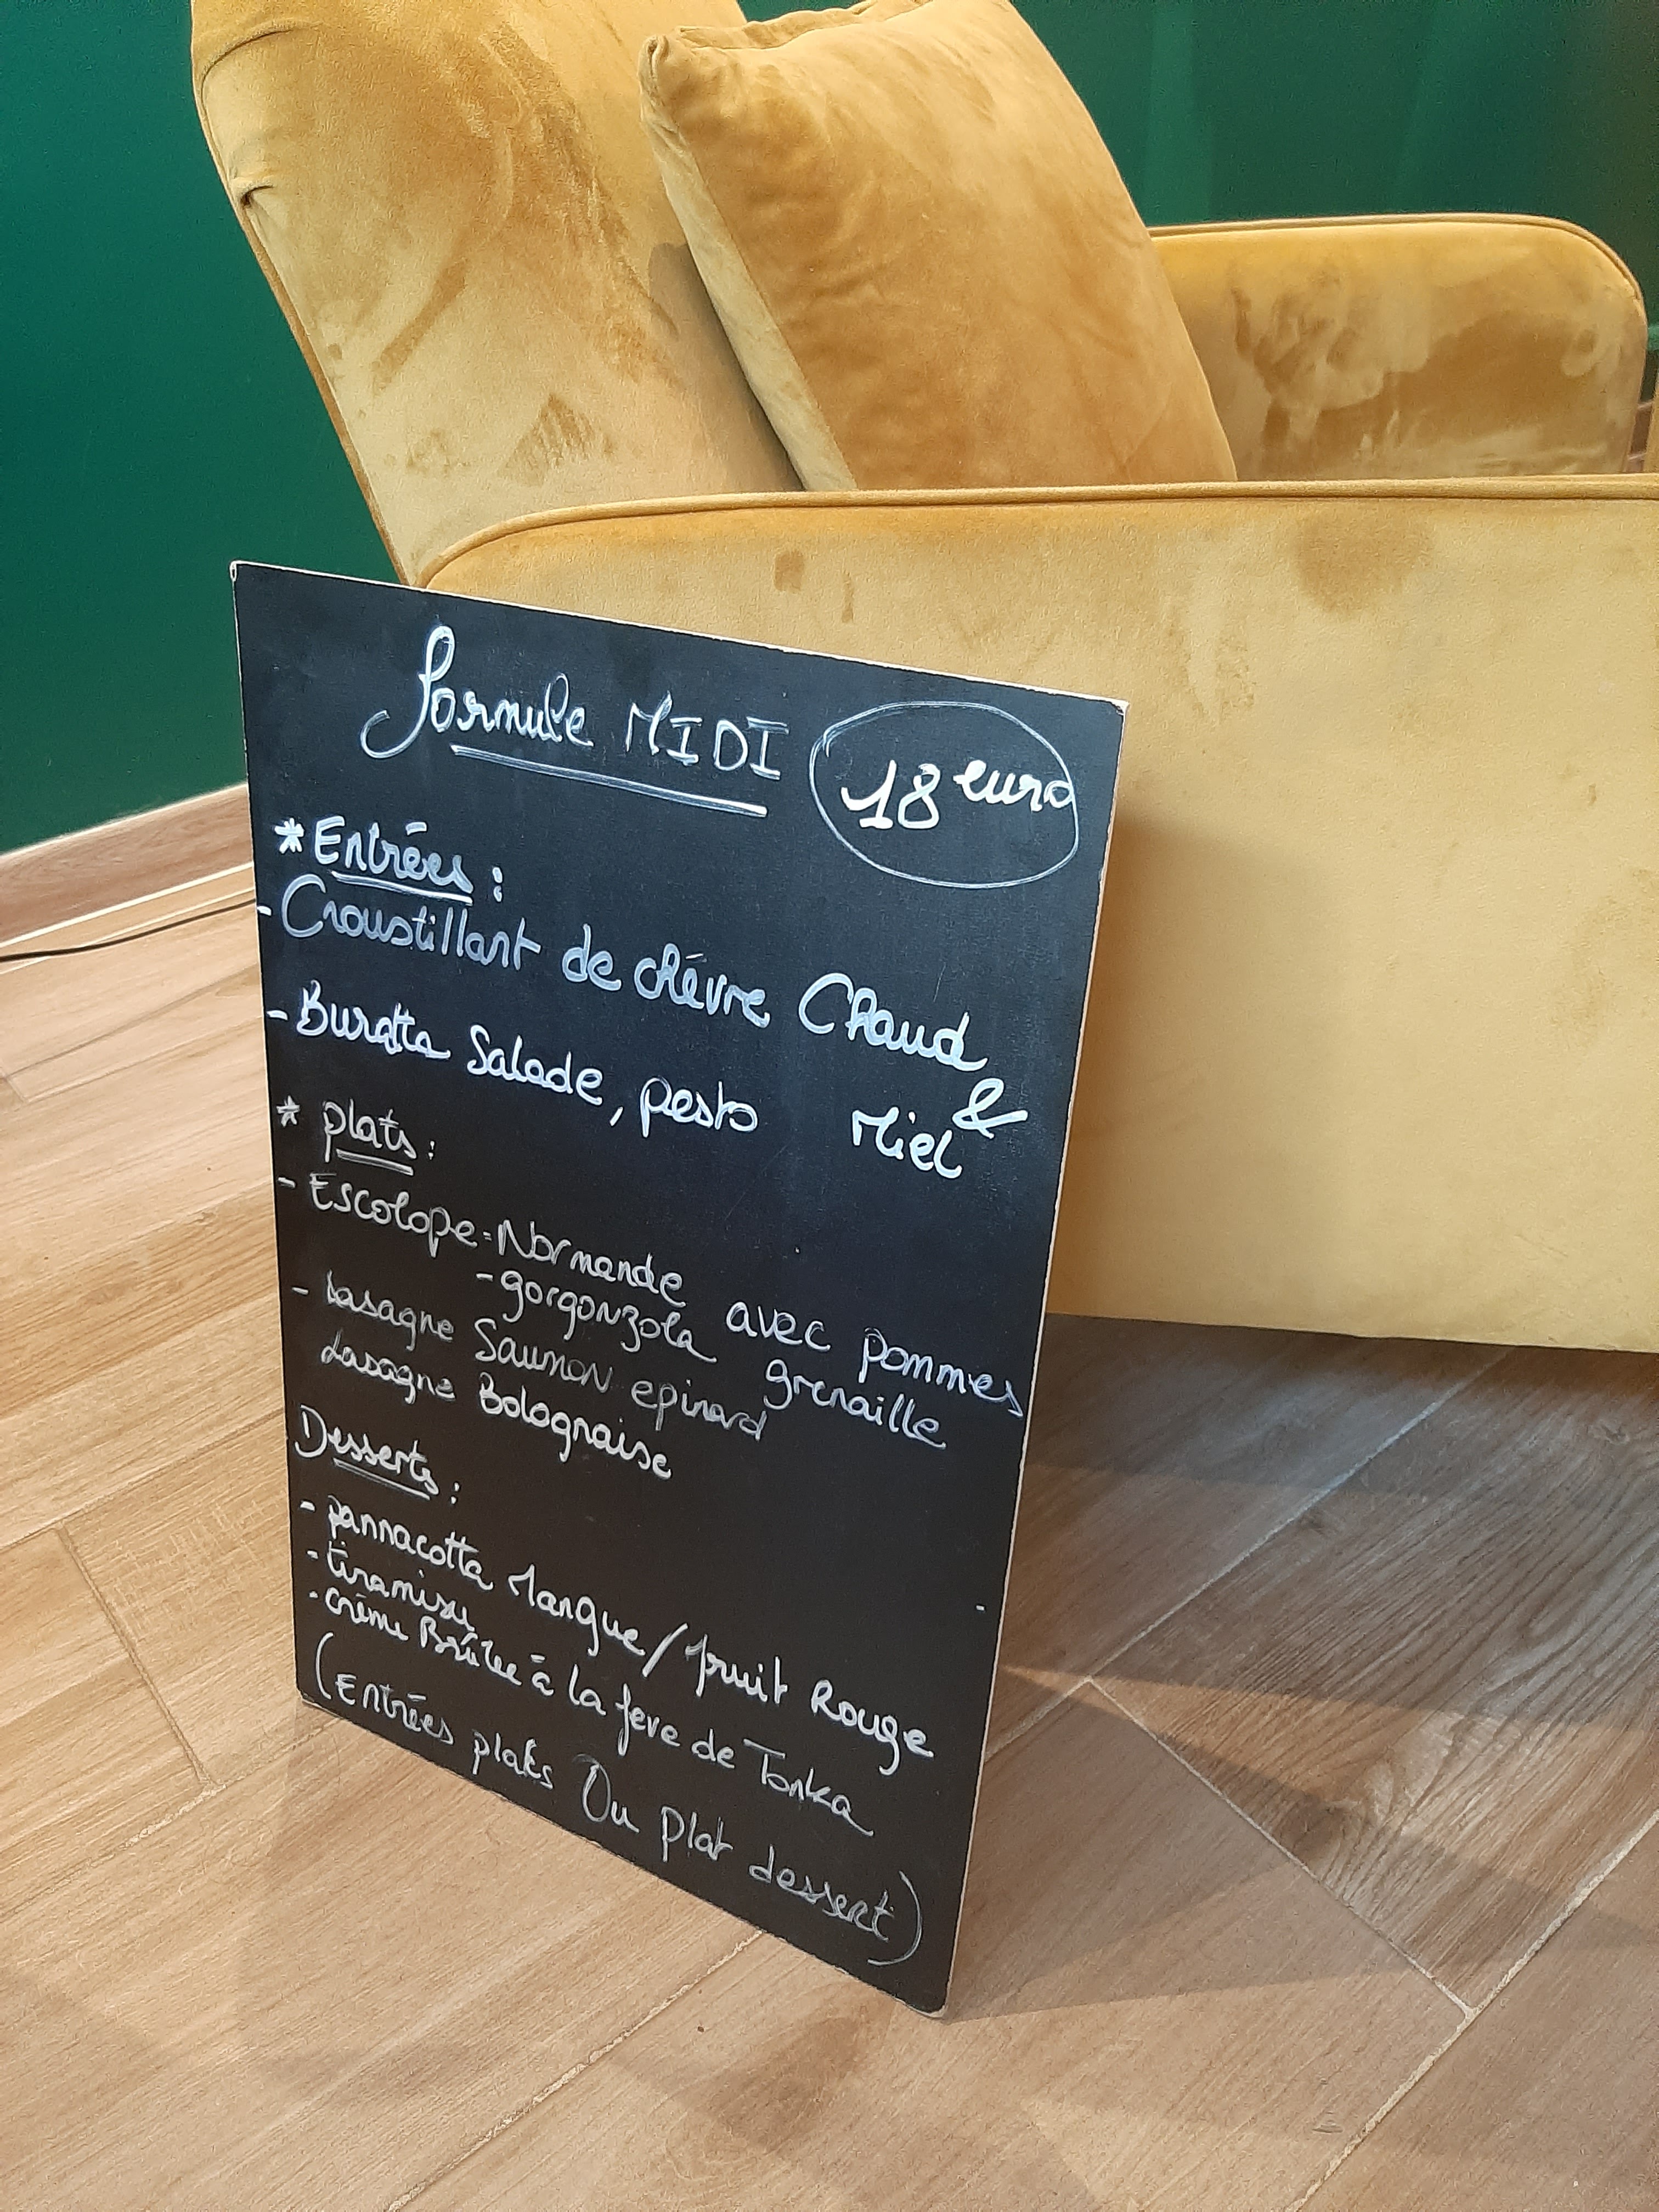 formule MIDI 18 euro
* Entrées :
- Croustillant de chévre Chaud
& Miel
- Buratta Salade, pesto
* plats :
- Escolope = Normande
- gorgonzola avec pommes grenaille
- Lasagne Saumon epinard
Lasagne Bolognaise
Desserts :
- pannacotta Mangue / fruit Rouge
- tiramisu
- Crème Brûlée à la feve de Tonka
(Entrées plats Ou plat dessert)